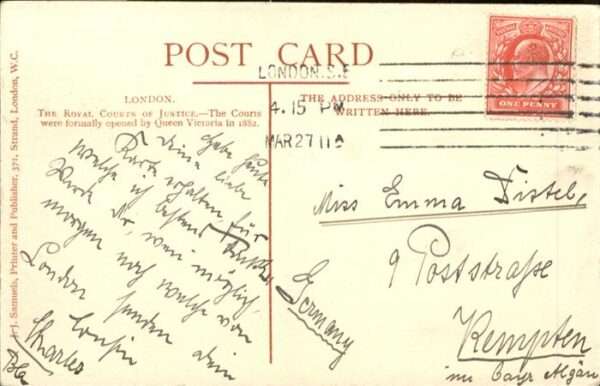 POST CARD
LONDON.
THE ROYAL COURTS OF JUSTICE.—The Courts
were formally opened by Queen Victoria in 1882.
THE ADDRESS ONLY TO BE
WRITTEN HERE.
J. Samuels, Printer and Publisher, 371, Strand, London, W.C.
LONDON.S.E
4.15 PM
MAR 27 11
ONE PENNY
Habe heute
deine liebe
Karte erhalten, für
welche ich bestens
Werde dir, wenn möglich,
morgen noch welche von
London senden dein
Cousin
Charles
Miss Emma Distel,
9 Poststraße
Kempten
im bayr Algäu
Germany